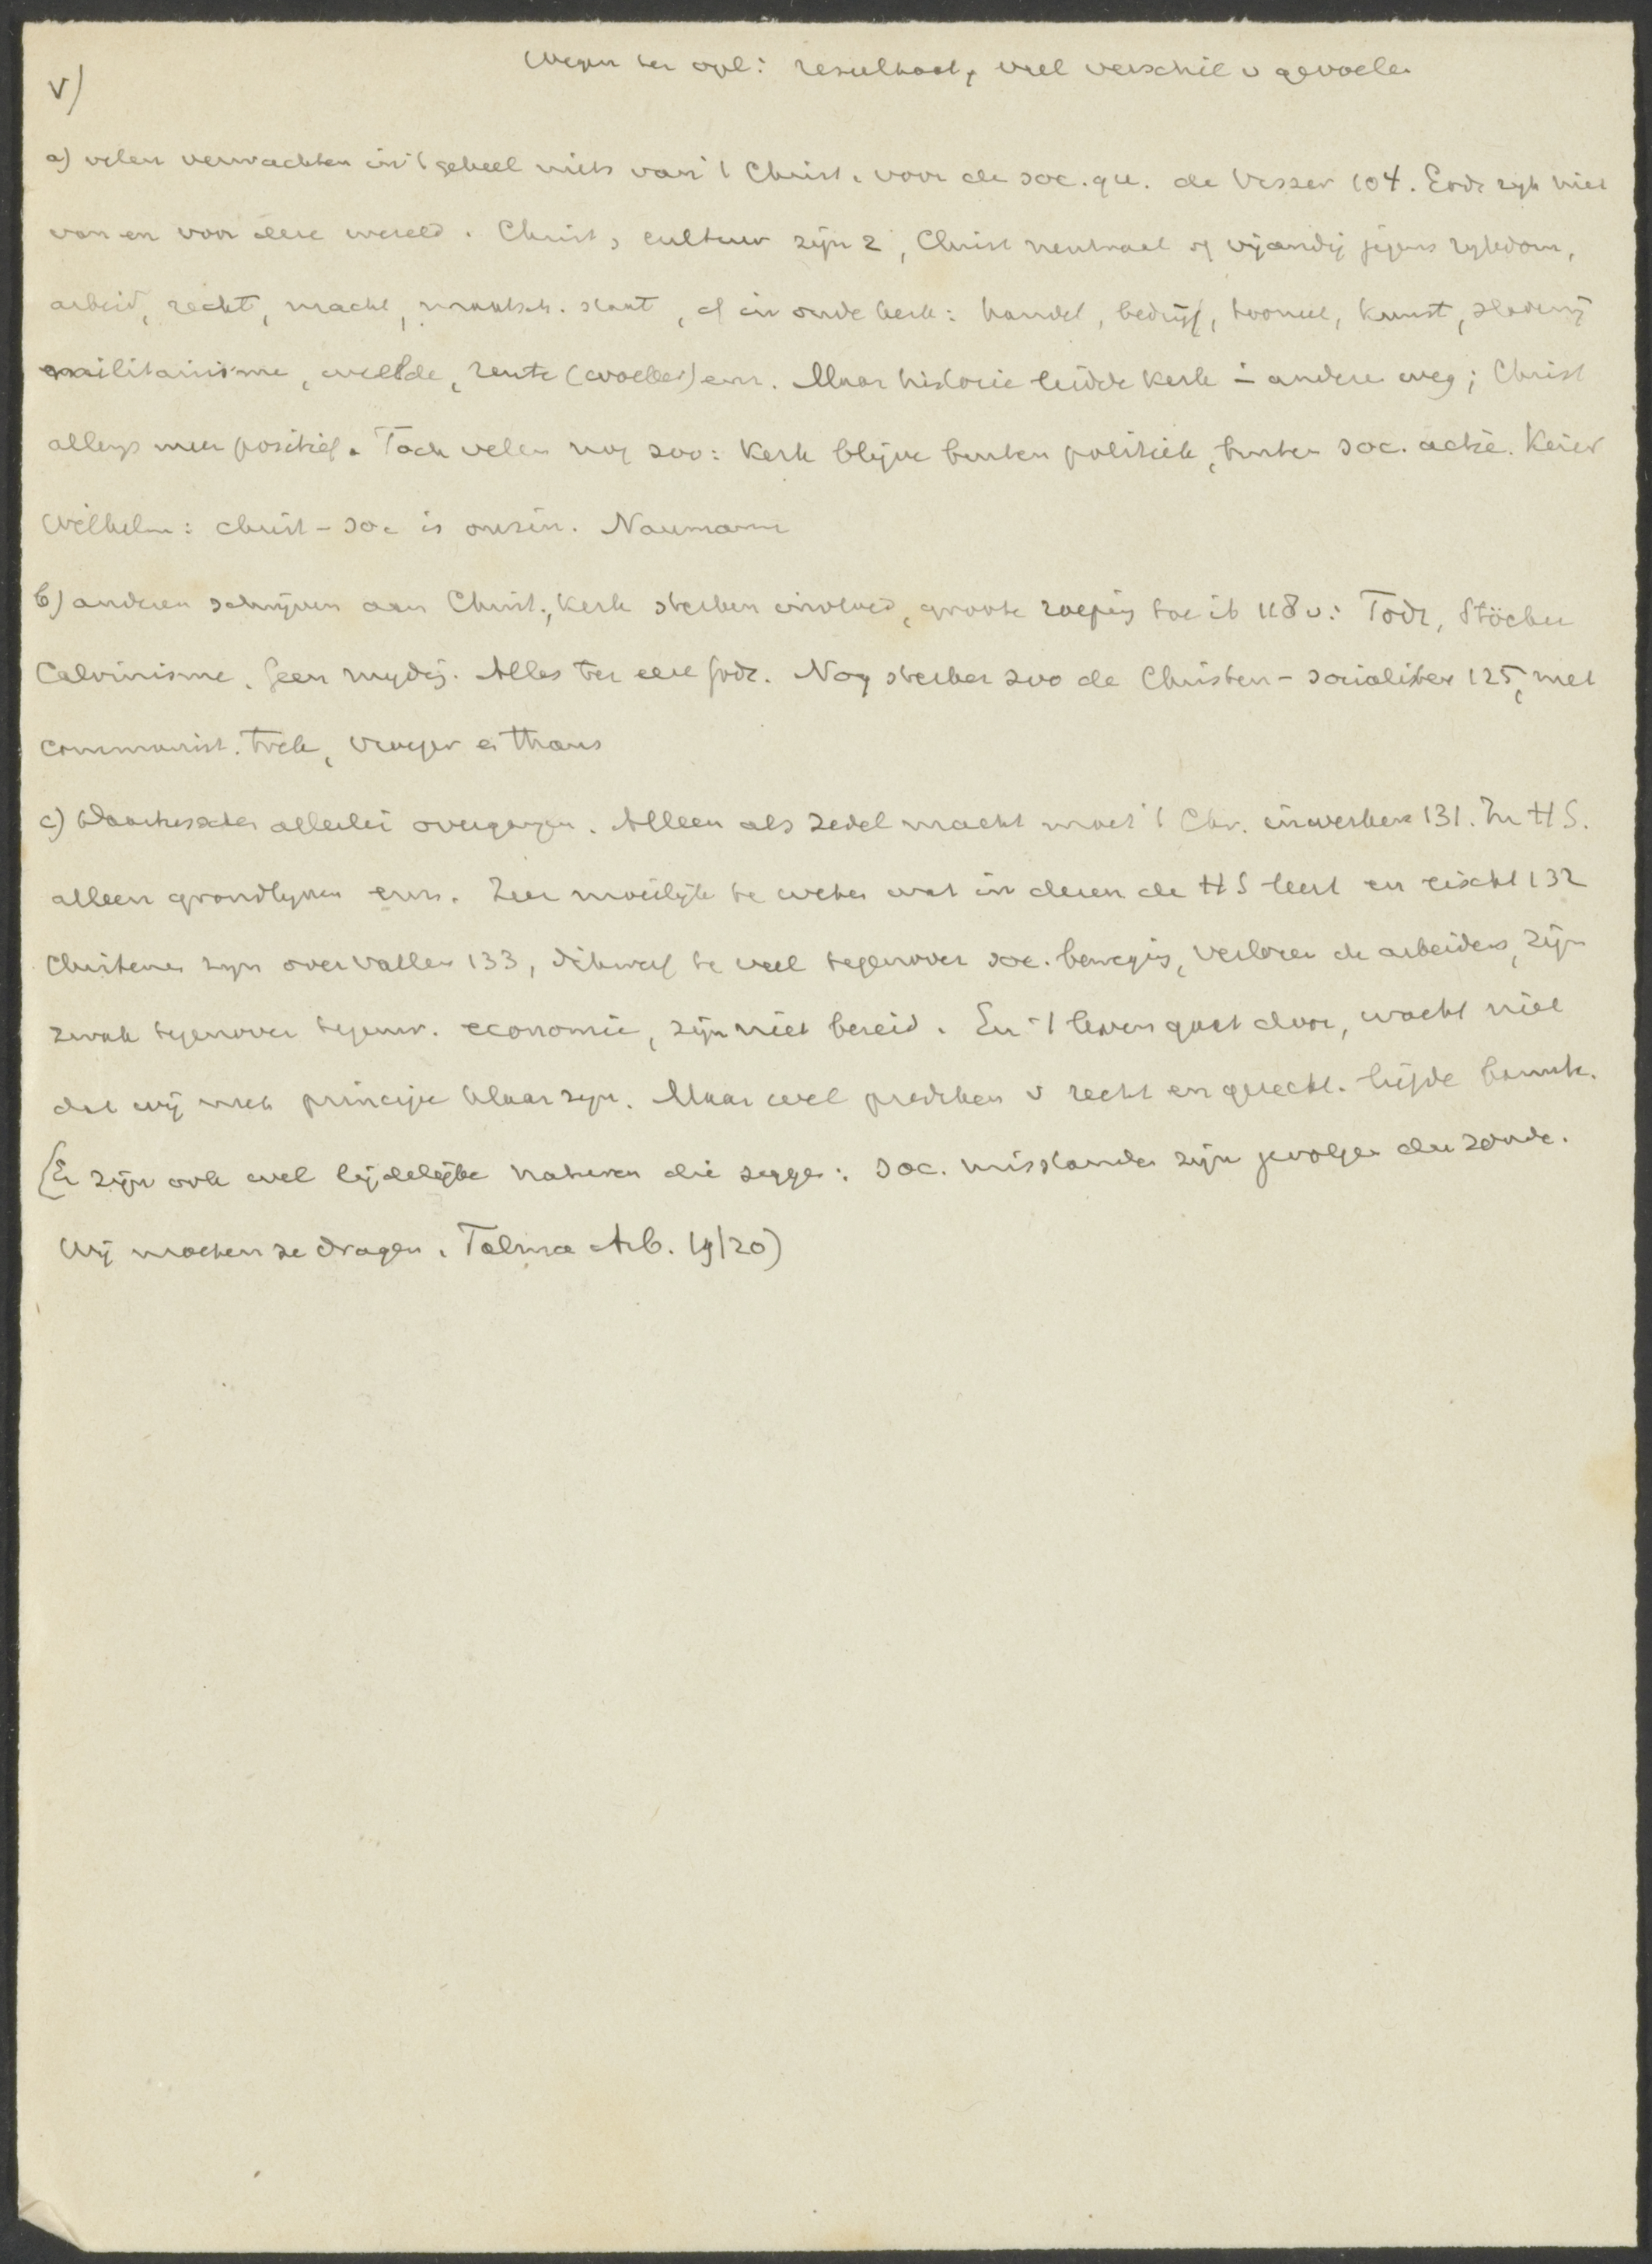 Wegen ter opl: resultaat, veel verschil v gevoelen
V)
a) velen verwachten in 't geheel niets van 't Christ. voor de soc. qu. de Visser 104. Gods ryk niet
van en voor deze wereld. Christ, cultuur zijn 2, Christ neutraal of vijandig jegens rykdom,
arbeid, recht, macht, maatsch. staat, cf in oude kerk: handel, bedrijf, tooneel, kunst, slavernij
militarisme, weelde, rente (woeker) enz. Maar historie leidde kerk - andere weg; Christ
allengs meer positief. Toch velen nog zoo: Kerk blijve buiten politiek, buiten soc. actie. Keizer
Wilhelm: christ-soc is onzin. Naumann
b) anderen schrijven aan Christ., Kerk sterken invloed, groote roeping toe ib 118 v: Todt, Stöcker
Calvinisme. Geen mijding. Alles ter eere Gods. Nog sterker zoo de Christen-socialisten 125, met
communist. trek, vroeger en thans
c) Daartusschen allerlei overgangen. Alleen als zedel macht moet 't Chr. inwerken 131. In HS.
alleen grondlynen enz. Zeer moeilijk te weten wat in dezen de HS leert en eischt 132
Christenen zyn overvallen 133, dikwerf te veel tegenover soc. beweging, verloren de arbeiders, zijn
zwak tegenover tegenw. economie, zijn niet bereid. En 't leven gaat door, wacht niet
dat wij met principe klaar zyn. Maar wel prediken v recht en gerecht. liefde barmh.
(Er zijn ook wel lijdelijke naturen die zeggen: soc. misstanden zijn gevolgen der zonde.
Wij moeten ze dragen. Talma Arb. 19/20)